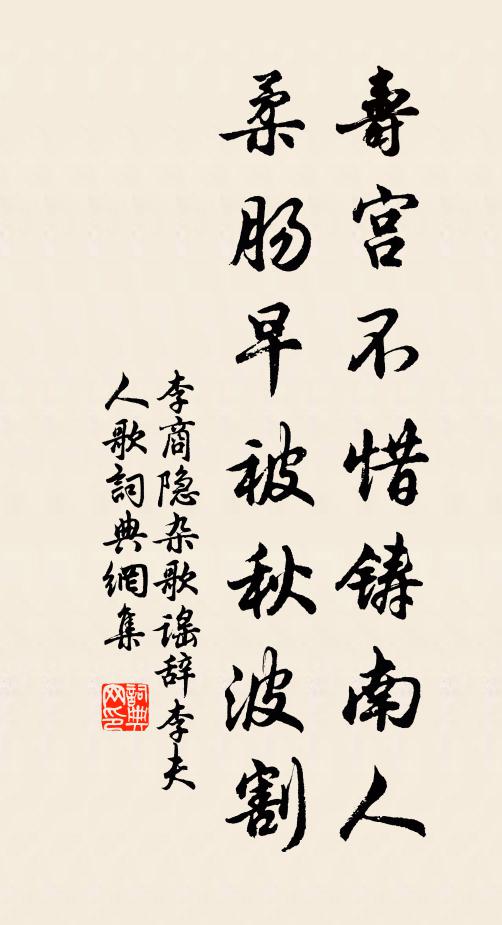 寿宫不惜铸南人
柔肠早被秋波割
李商隐杂歌谣辞李夫
人歌詞典網集
詞典
网印